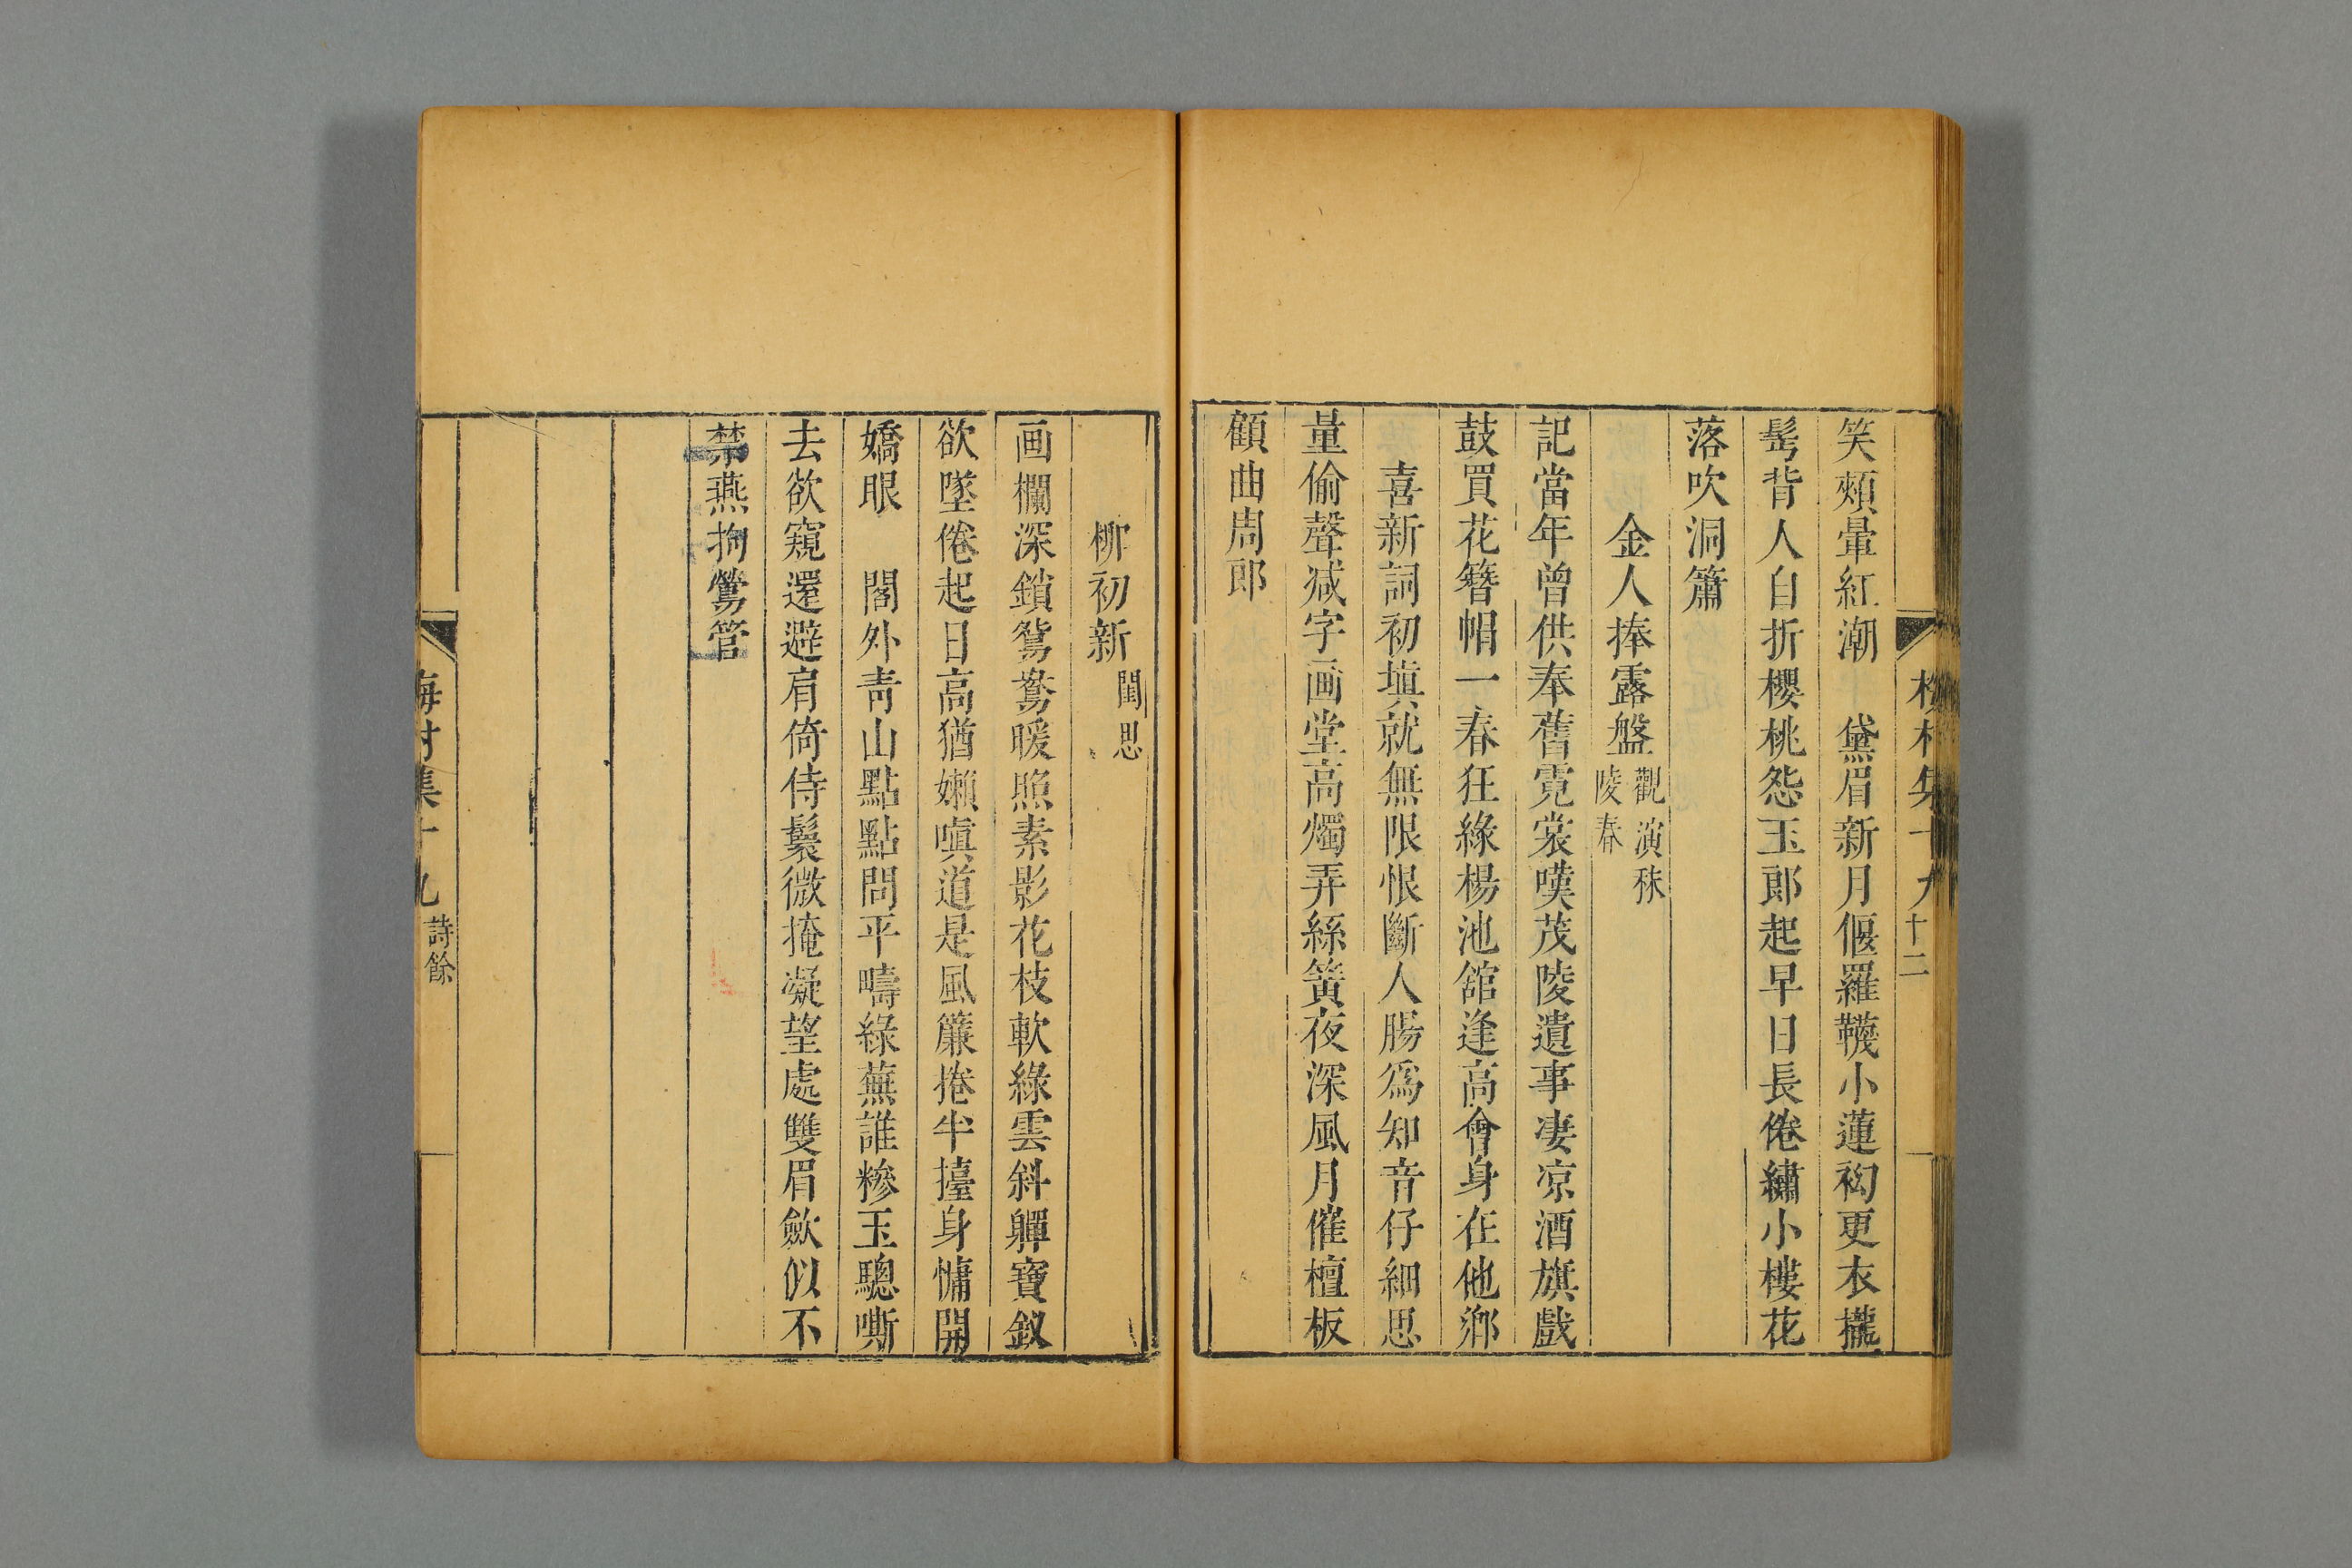 梅村集十九 十二
笑頰暈紅潮 黛眉新月偃羅韈小蓮袎更衣攏
髩背人自折櫻桃怨玉郎起早日長倦繡小樓花
落吹洞簫
金人捧露盤 觀演秣陵春
記當年曾供奉舊霓裳嘆茂陵遺事凄凉酒旗戲
鼓買花簪帽一春狂緑楊池舘逢高會身在他鄉
喜新詞初塡就無限恨斷人腸爲知音仔細思
量偷聲減字画堂高燭弄絲簧夜深風月催檀板
顧曲周郎
柳初新 閨思
画欄深鎖鴛鴦暖照素影花枝軟綠雲斜軃寶釵
欲墜倦起日高猶嬾嗔道是風簾捲半擡身慵開
嬌眼 閣外靑山點點問平疇綠蕪誰糝玉驄嘶
去欲窺還避肩倚侍鬟微掩凝望處雙眉歛似不
禁燕拘鶯管
梅村集十九 詩餘